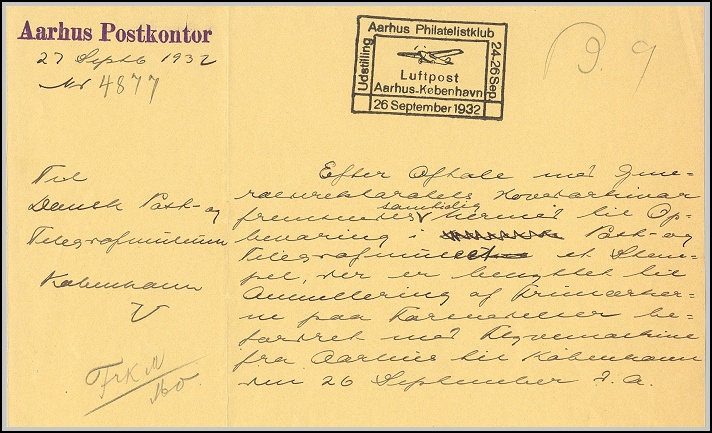 Aarhus Postkontor
27 Septb 1932
Nr 4877
Aarhus Philatelistklub
Udstilling
24-26 Sep.
Luftpost
Aarhus-København
26 September 1932
Til
Dansk Post- og
Telegrafmuseum
København
V
Efter Aftale med Gene-
raldirektoratets Hovedarkivar
fremsendes samtidig hermed til Op-
bevaring i Post- og
Telegrafmuseet et Stem-
pel, der er benyttet til
Annullering af Frimærker-
ne paa Forsendelser be-
fordret med Flyvemaskine
fra Aarhus til København
den 26 September d. A.